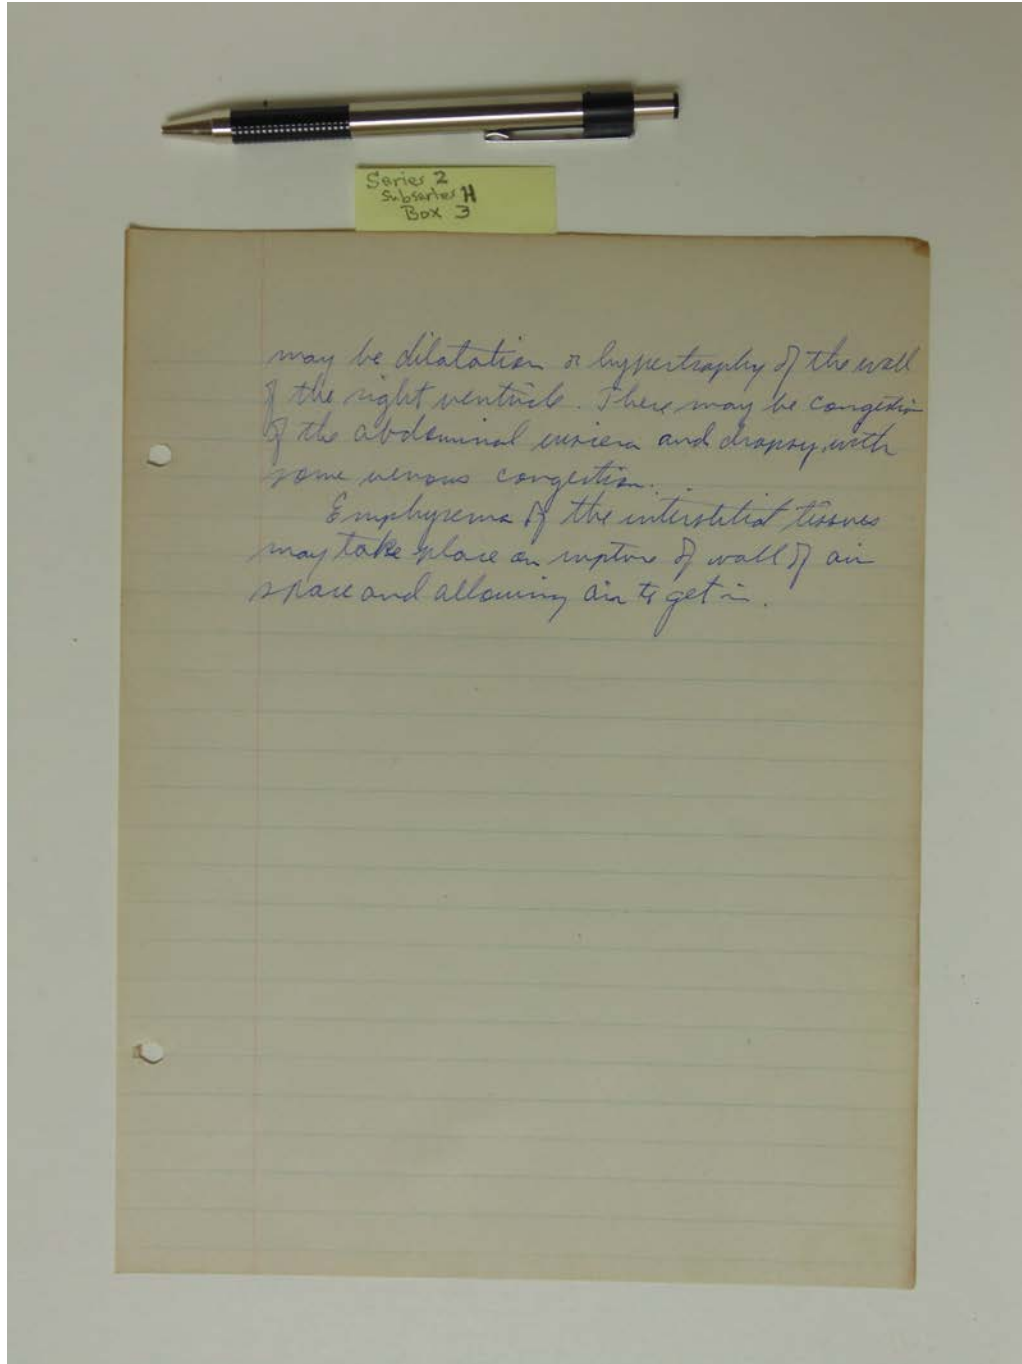 Series 2
Subseries H
Box 3
may be dilatation or hypertrophy of the wall
of the right ventricle. There may be congestion
of the abdominal and dropsy with
some venous congestion.
Emphysema of the interstitial tissues
may take place on rupture of wall of air
space and allowing air to get in.